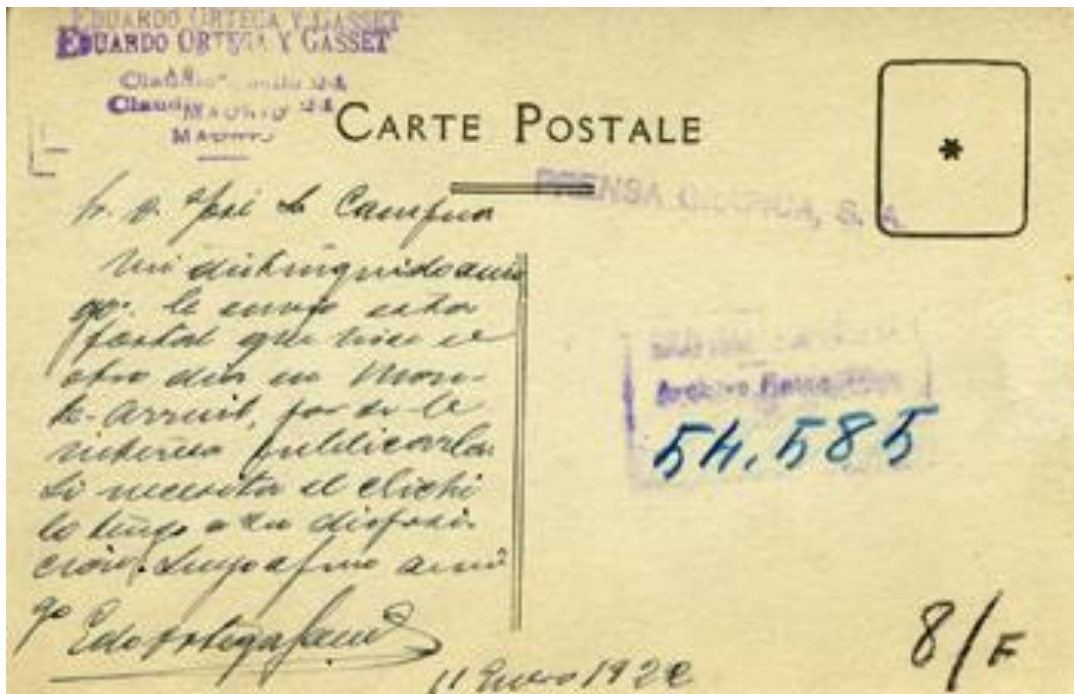 EDUARDO ORTEGA Y GASSET
EDUARDO ORTEGA Y GASSET
Claudio
Claudio MADRID 24
MADRID
CARTE POSTALE
PRENSA GRÁFICA, S. A.
*
Sr. D. José L. Campúa
Mi distinguido ami
go: le envio esta
postal que hice el
otro dia en Mon-
te-Arruit, por si le
interesa publicarla.
Si necesita el cliché
lo tengo a su disposi-
ción. Suyo afmo ami
go
Edo Ortega Gasset
11 Enero 1922
Archivo
54.585
8/F